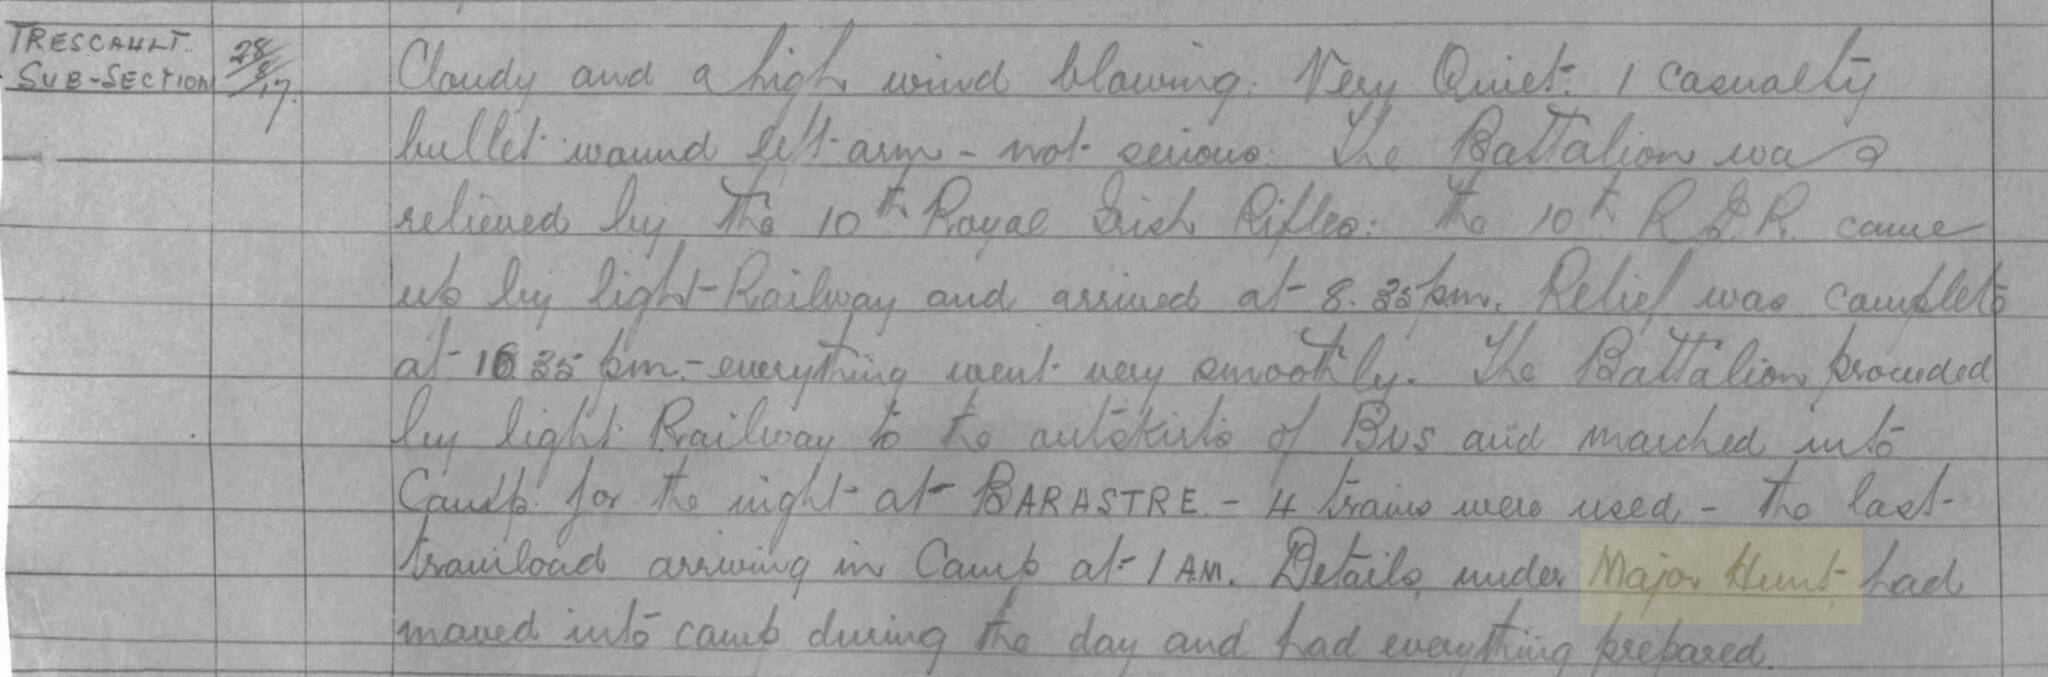 TRESCAULT.
SUB-SECTION
28/8/17.
Cloudy and a high wind blowing. Very Quiet. 1 casualty
bullet wound left arm - not serious. The Battalion was
relieved by the 10th Royal Irish Rifles. The 10th R.I.R. came
up by light Railway and arrived at 8.35 pm. Relief was complete
at 10.35 pm. - everything went very smoothly. The Battalion proceeded
by light Railway to the outskirts of BUS and marched into
Camp for the night at BARASTRE - 4 trains were used - the last
trainload arriving in Camp at 1 AM. Details under Major Hunt had
moved into camp during the day and had everything prepared.